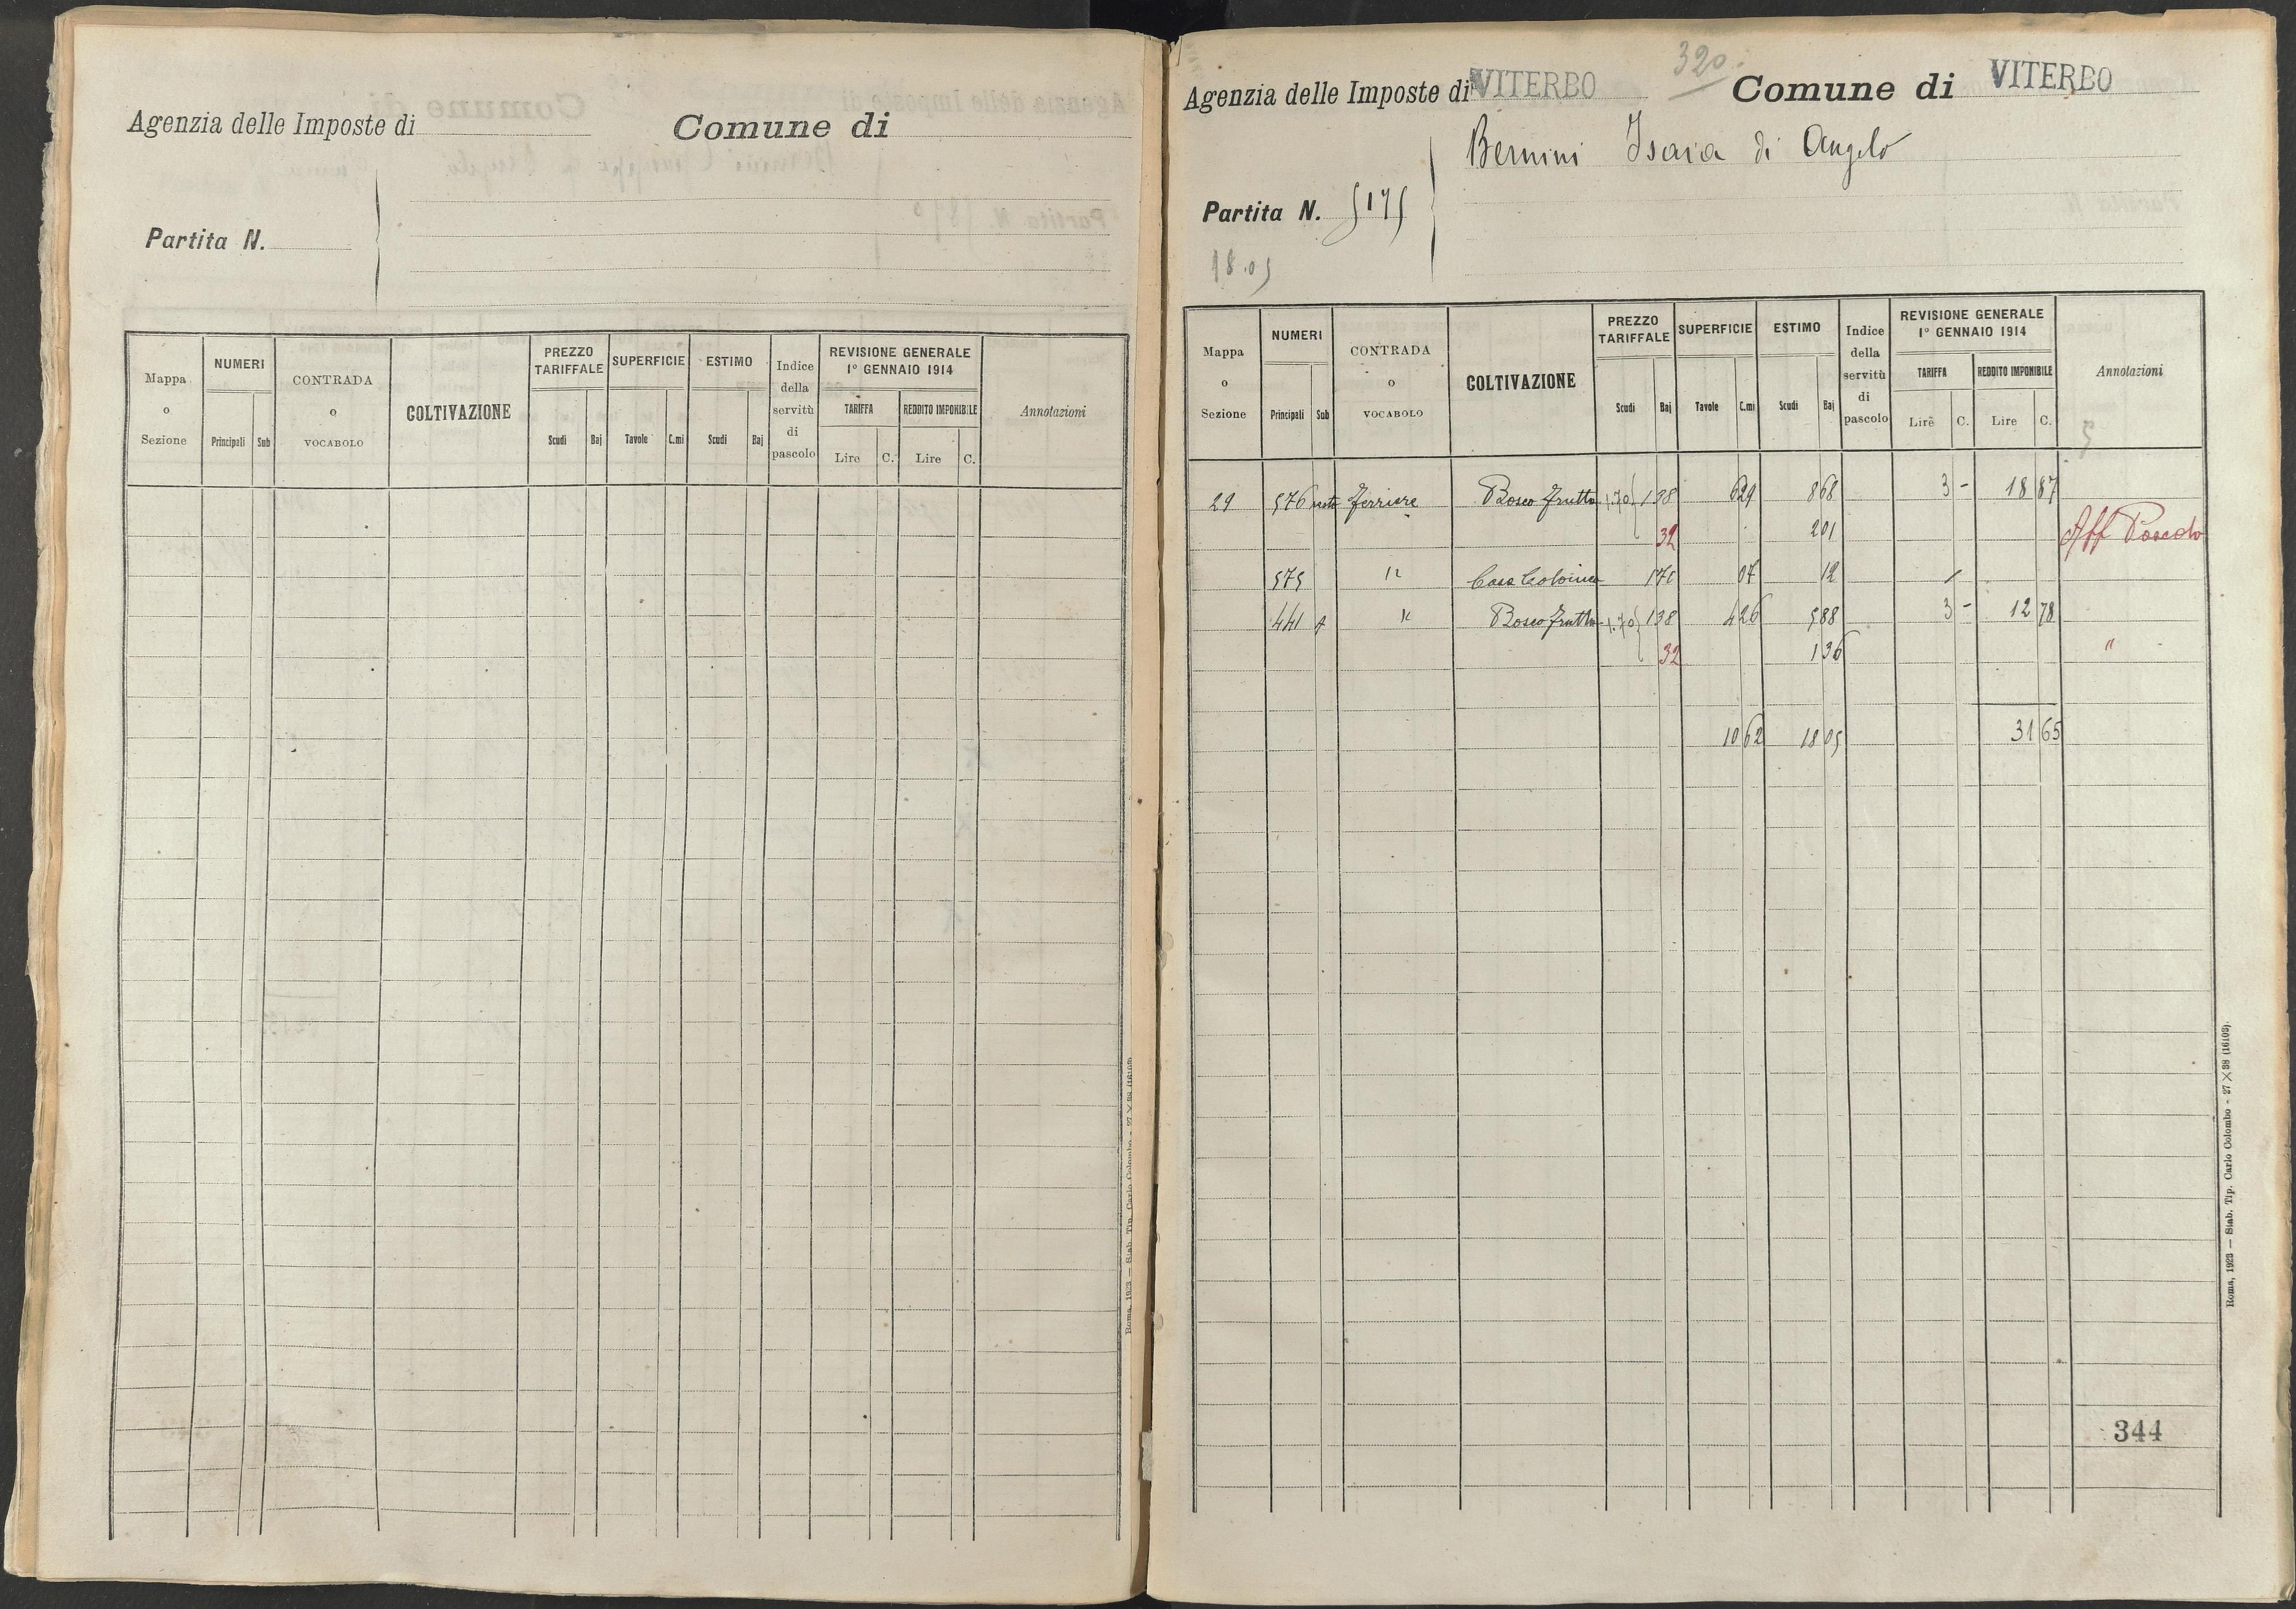 Agenzia delle Imposte di
Comune di
Partita N.
Mappa o Sezione
NUMERI
Principali Sub
CONTRADA o VOCABOLO
COLTIVAZIONE
PREZZO TARIFFALE
Scudi Baj
SUPERFICIE
Tavole C.mi
ESTIMO
Scudi Baj
Indice della servitù di pascolo
REVISIONE GENERALE
1° GENNAIO 1914
TARIFFA
Lire C.
REDDITO IMPONIBILE
Lire C.
Annotazioni
Roma, 1923 — Stab. Tip. Carlo Colombo - 27 X 38 (16103).
320
Agenzia delle Imposte di VITERBO Comune di VITERBO
Bernini Isaia di Angelo
Partita N. 5175
18.05
Mappa o Sezione
NUMERI
Principali Sub
CONTRADA o VOCABOLO
COLTIVAZIONE
PREZZO TARIFFALE
Scudi Baj
SUPERFICIE
Tavole C.mi
ESTIMO
Scudi Baj
Indice della servitù di pascolo
REVISIONE GENERALE
1° GENNAIO 1914
TARIFFA
Lire C.
REDDITO IMPONIBILE
Lire C.
Annotazioni
5
29 576 resto Ferriere Bosco Frutto 1.70 1 38 6 29 8 68 3 - 18 87
32 2 01 Aff Pascolo
575 " Casa Colonica 1 70 07 12
441 " Bosco Frutto 1.70 1 38 4 26 5 88 3 - 12 78
32 1 36 "
10 62 18 05 31 65
344
Roma, 1923 — Stab. Tip. Carlo Colombo - 27 X 38 (16103).